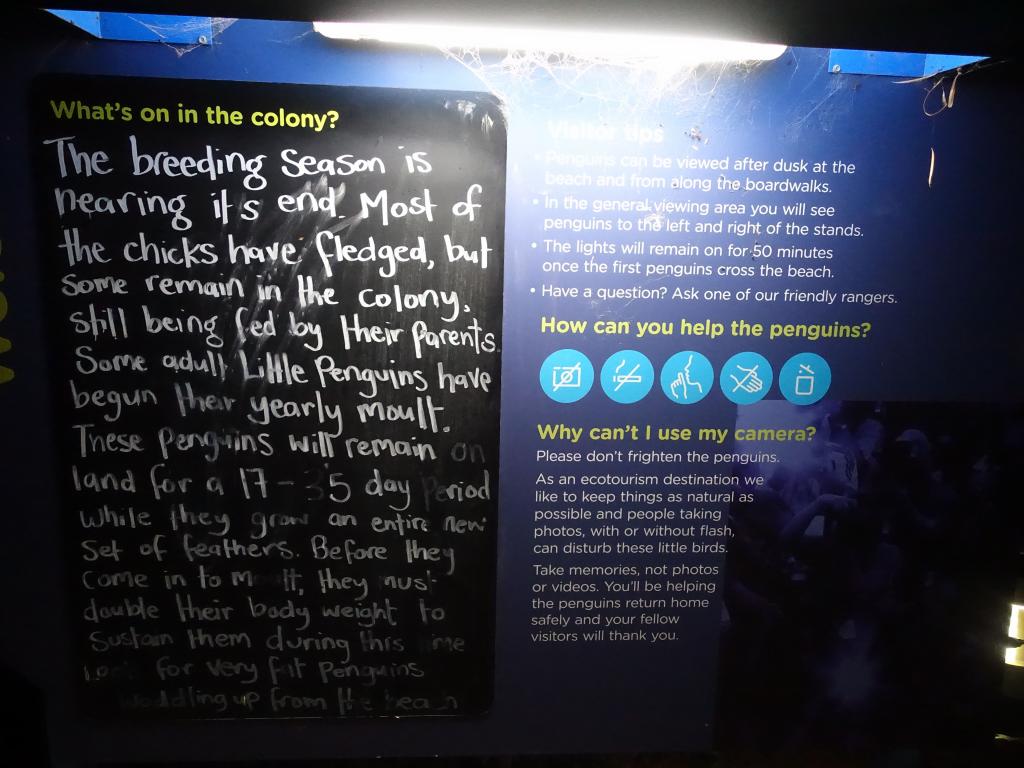 What's on in the colony?
The breeding season is
nearing it's end. Most of
the chicks have fledged, but
some remain in the colony,
still being fed by their parents.
Some adult Little Penguins have
begun their yearly moult.
These penguins will remain on
land for a 17-35 day period
while they grow an entire new
set of feathers. Before they
come in to moult, they must
double their body weight to
sustain them during this time
Look for very fat penguins
waddling up from the beach
Visitor tips
• Penguins can be viewed after dusk at the
beach and from along the boardwalks.
• In the general viewing area you will see
penguins to the left and right of the stands.
• The lights will remain on for 50 minutes
once the first penguins cross the beach.
• Have a question? Ask one of our friendly rangers.
How can you help the penguins?
Why can't I use my camera?
Please don't frighten the penguins.
As an ecotourism destination we
like to keep things as natural as
possible and people taking
photos, with or without flash,
can disturb these little birds.
Take memories, not photos
or videos. You'll be helping
the penguins return home
safely and your fellow
visitors will thank you.